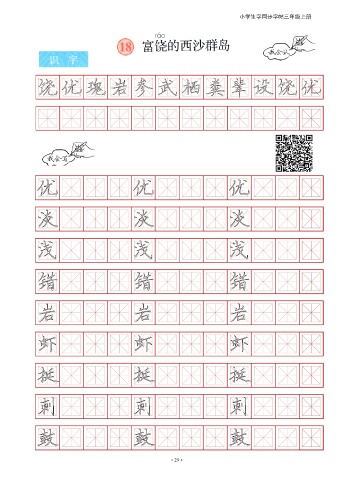 小学生字同步字帖三年级上册
ráo
18 富饶的西沙群岛
我会认
识 字
饶 优 瑰 岩 参 武 栖 粪 辈 设 饶 优
我会写
优 优 优
淡 淡 淡
浅 浅 浅
错 错 错
岩 岩 岩
虾 虾 虾
挺 挺 挺
刺 刺 刺
鼓 鼓 鼓
· 29 ·